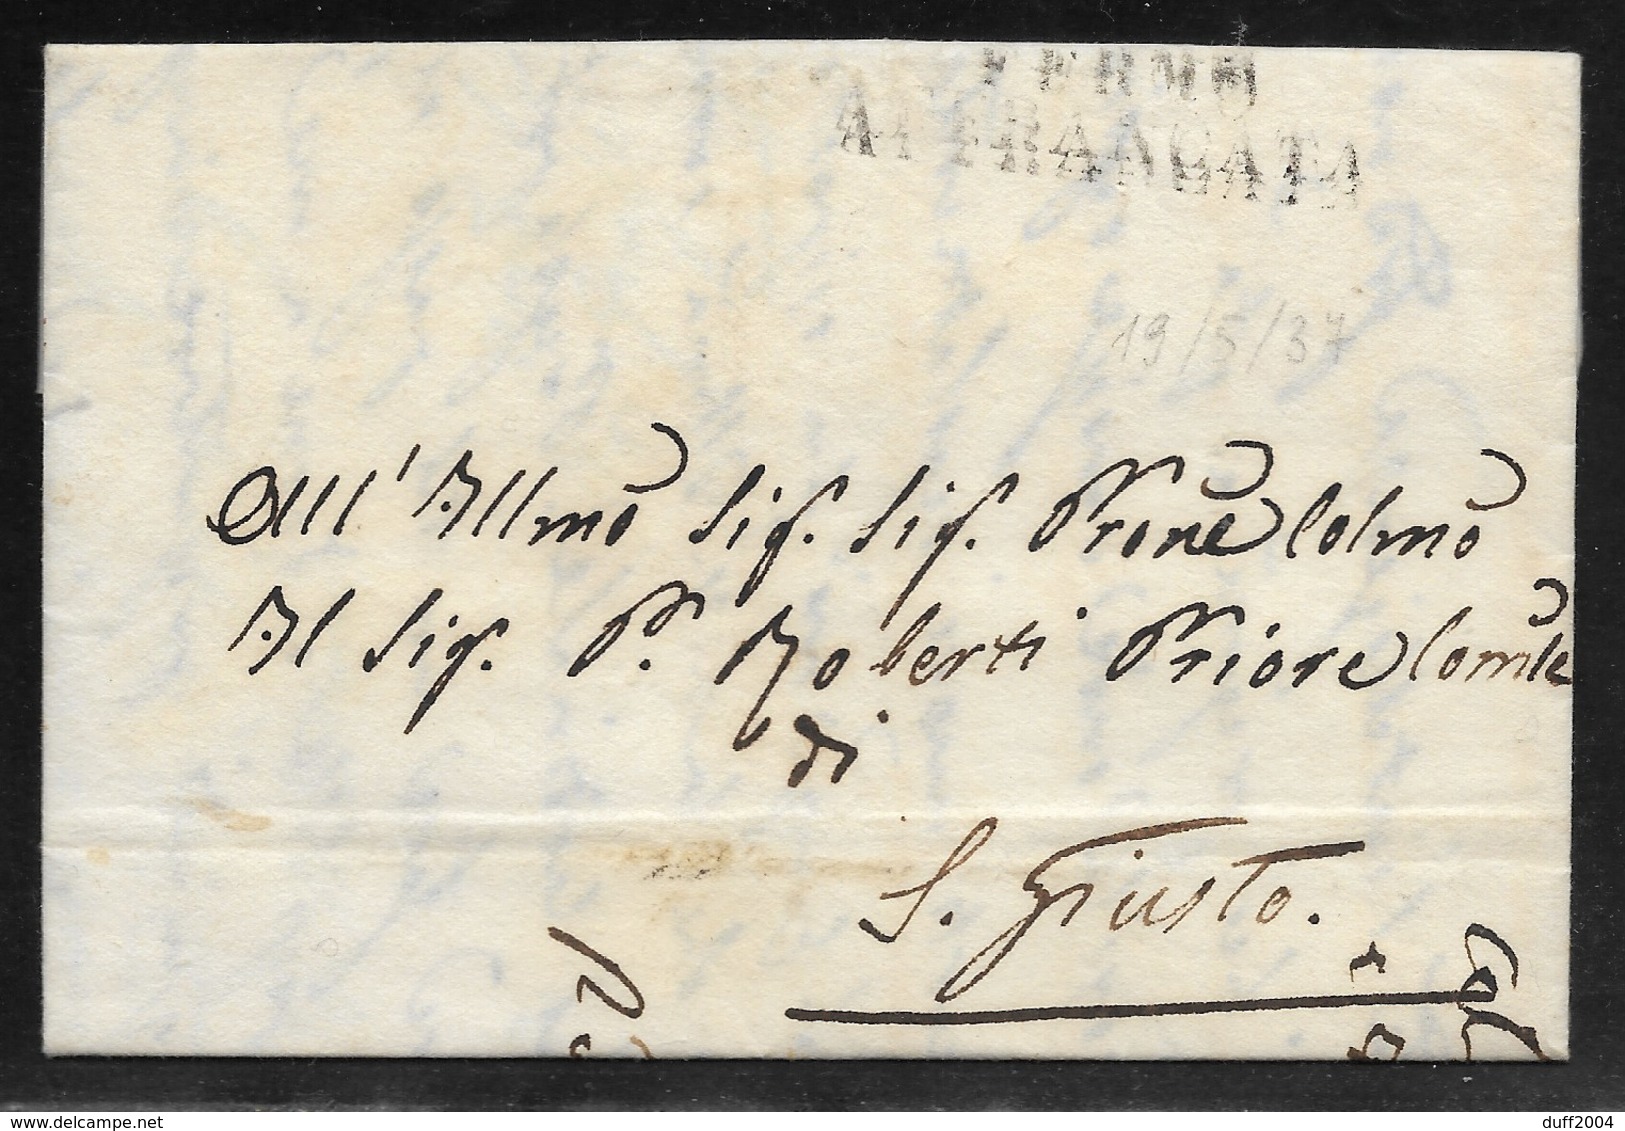 FERMO
AFFRANCATA
19/5/37
All' Illmo Sig. Sig. Prone Colmo
Al Sig. P. Roberti Priore Comle
di
S. Giusto.
www.delcampe.net
duff2004